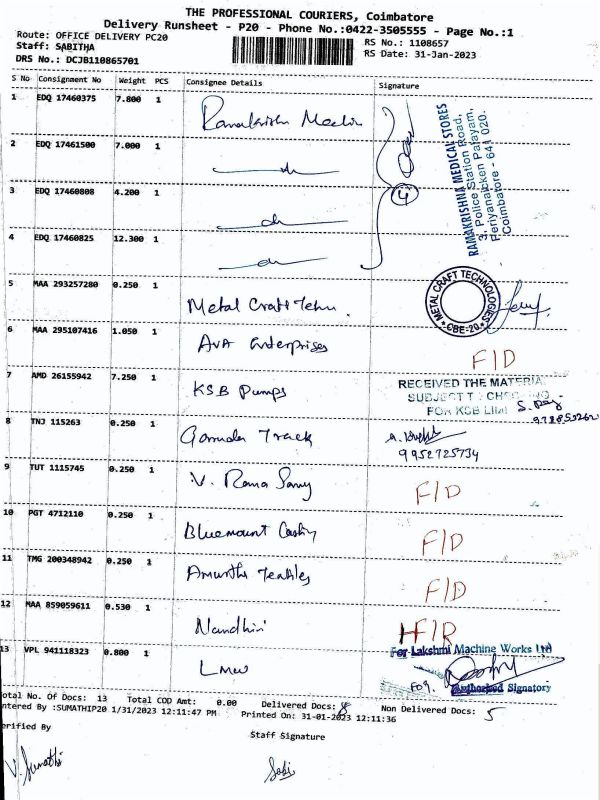 THE PROFESSIONAL COURIERS, Coimbatore
Delivery Runsheet - P20 - Phone No.:0422-3505555 - Page No.:1
Route: OFFICE DELIVERY PC20
RS No.: 1108657
Staff: SABITHA
RS Date: 31-Jan-2023
DRS No.: DCJB110865701
S No Consignment No Weight PCS Consignee Details Signature
1 EDQ 17460375 7.800 1 Ramakrishn
2 EDQ 17461500 7.000 1
3 EDQ 17460808 4.200 1
4 EDQ 17460825 12.300 1
4
RAMAKRISHNA MEDICAL STORES
3, Police Station Road,
Periyanaicken Palayam,
Coimbatore - 641 020.
5 MAA 293257280 0.250 1 Metal Craft Tehn.
METAL CRAFT TECHNOLOGIES
* CBE-20. *
6 MAA 295107416 1.050 1 AVA Enterprises F/D
7 AMD 26155942 7.250 1 KSB Pumps
RECEIVED THE MATERIAL
SUBJECT T CHECKING
FOR KSB LIMI
8 TNJ 115263 0.250 1 Gomuda Track
9952725734
9 TUT 1115745 0.250 1 V. Rama Samy F/D
10 PGT 4712110 0.250 1 Bluemount Casting F/D
11 TMG 200348942 0.250 1 Amurtha Textiles F/D
12 MAA 859059611 0.530 1 Nandhini F/R
13 VPL 941118323 0.800 1 LMW
For Lakshmi Machine Works Ltd
For.
Authorised Signatory
otal No. Of Docs: 13 Total COD Amt: 0.00 Delivered Docs: 8 Non Delivered Docs: 5
ntered By :SUMATHIP20 1/31/2023 12:11:47 PM Printed On: 31-01-2023 12:11:36
erified By
Staff Signature
V. Sumathi
Sabi